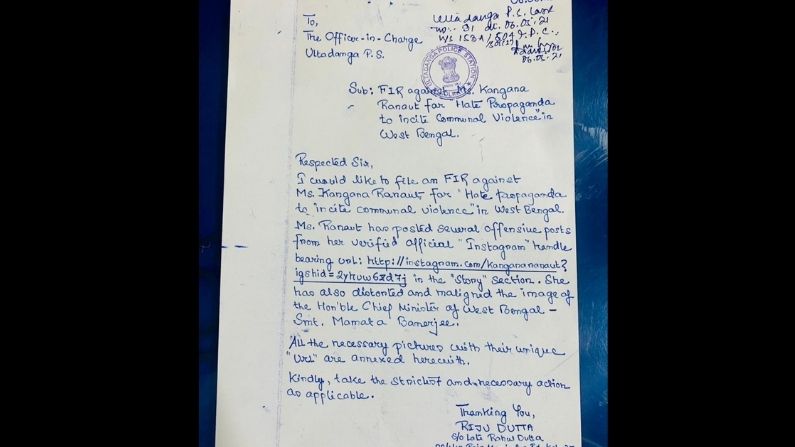 To,
The Officer-in-Charge
Ultadanga P.S.
Ultadanga P.S. Case
no. 31 dt. 06.05.21
Sub: FIR against Ms. Kangana
Ranaut for "Hate Propaganda
to incite Communal Violence" in
West Bengal.
Respected Sir,
I would like to file an FIR against
Ms. Kangana Ranaut for "Hate propaganda
to incite communal violence" in West Bengal.
Ms. Ranaut has posted several offensive posts
from her verified official "Instagram" handle
bearing url: http://instagram.com/kanganaranaut?
in the "Story" section. She
has also distorted and maligned the image of
the Hon'ble Chief Minister of West Bengal –
Smt. Mamata Banerjee.
All the necessary pictures with their unique
"Url" are annexed herewith.
Kindly, take the strictest and necessary action
as applicable.
Thanking You,
RIJU DUTTA
S/o Late Rahul Dutta